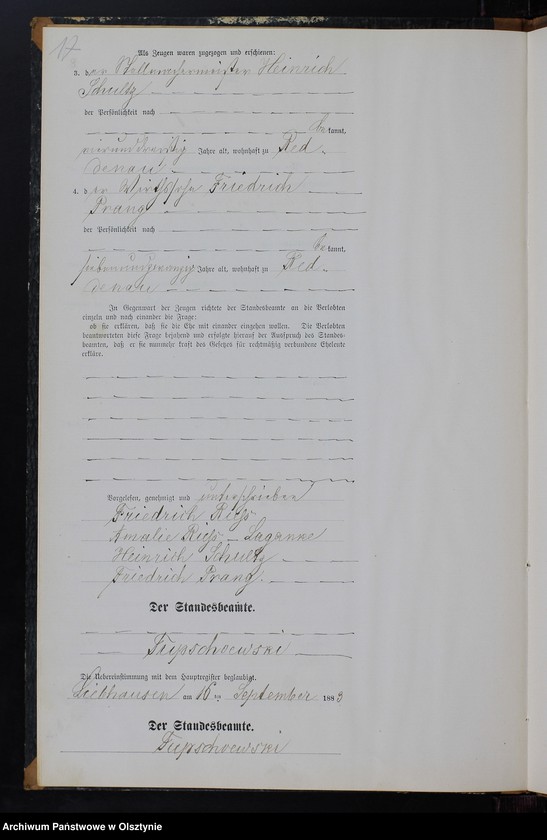 17
Als Zeugen waren zugezogen und erschienen:
3. der Heinrich
Schultz
der Persönlichkeit nach
bekannt,
Jahre alt, wohnhaft zu Red-
denau
4. der Wirthssohn Friedrich
Prang
der Persönlichkeit nach
bekannt,
siebenundzwanzig Jahre alt, wohnhaft zu Red-
denau
In Gegenwart der Zeugen richtete der Standesbeamte an die Verlobten
einzeln und nach einander die Frage:
ob sie erklären, daß sie die Ehe mit einander eingehen wollen. Die Verlobten
beantworteten diese Frage bejahend und erfolgte hierauf der Ausspruch des Standes-
beamten, daß er sie nunmehr kraft des Gesetzes für rechtmäßig verbundene Eheleute
erkläre.
Vorgelesen, genehmigt und unterschrieben
Friedrich Rieß
Amalie Rieß – Laganne
Heinrich Schultz
Friedrich Prang.
Der Standesbeamte.
Die Uebereinstimmung mit dem Hauptregister beglaubigt.
am September 1883
Der Standesbeamte.
Archiwum Państwowe w Olsztynie